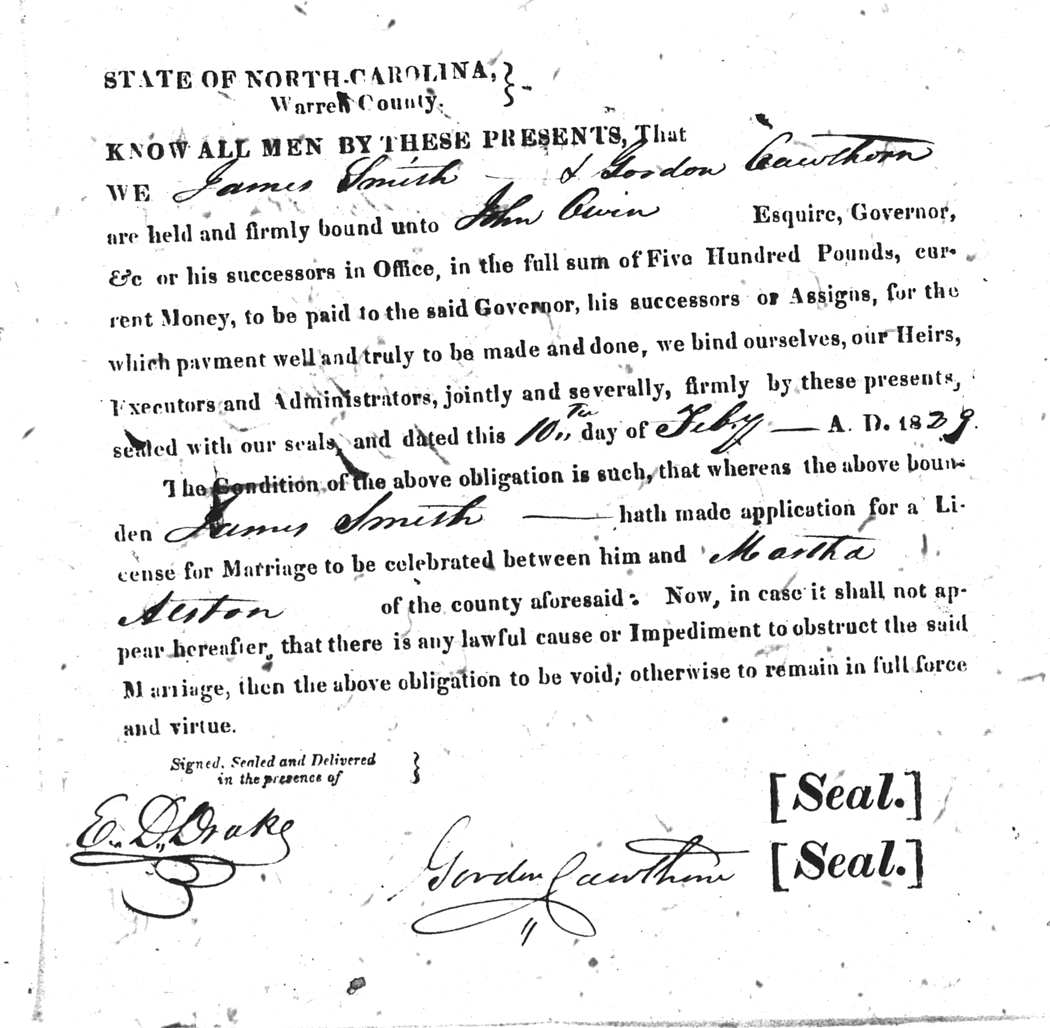 STATE OF NORTH-CAROLINA,
Warren County.
KNOW ALL MEN BY THESE PRESENTS, That
WE James Smith — & Gordon Cawthorn
are held and firmly bound unto John Owen Esquire, Governor,
&c or his successors in Office, in the full sum of Five Hundred Pounds, cur-
rent Money, to be paid to the said Governor, his successors or Assigns, for the
which payment well and truly to be made and done, we bind ourselves, our Heirs,
Executors and Administrators, jointly and severally, firmly by these presents,
sealed with our seals, and dated this 10th day of Feby — A. D. 1829.
The Condition of the above obligation is such, that whereas the above boun-
den James Smith — hath made application for a Li-
cense for Marriage to be celebrated between him and Martha
Alston of the county aforesaid: Now, in case it shall not ap-
pear hereafter, that there is any lawful cause or Impediment to obstruct the said
Marriage, then the above obligation to be void; otherwise to remain in full force
and virtue.
Signed, Sealed and Delivered
in the presence of
[Seal.]
E. D. Drake
Gordon Cawthorn [Seal.]